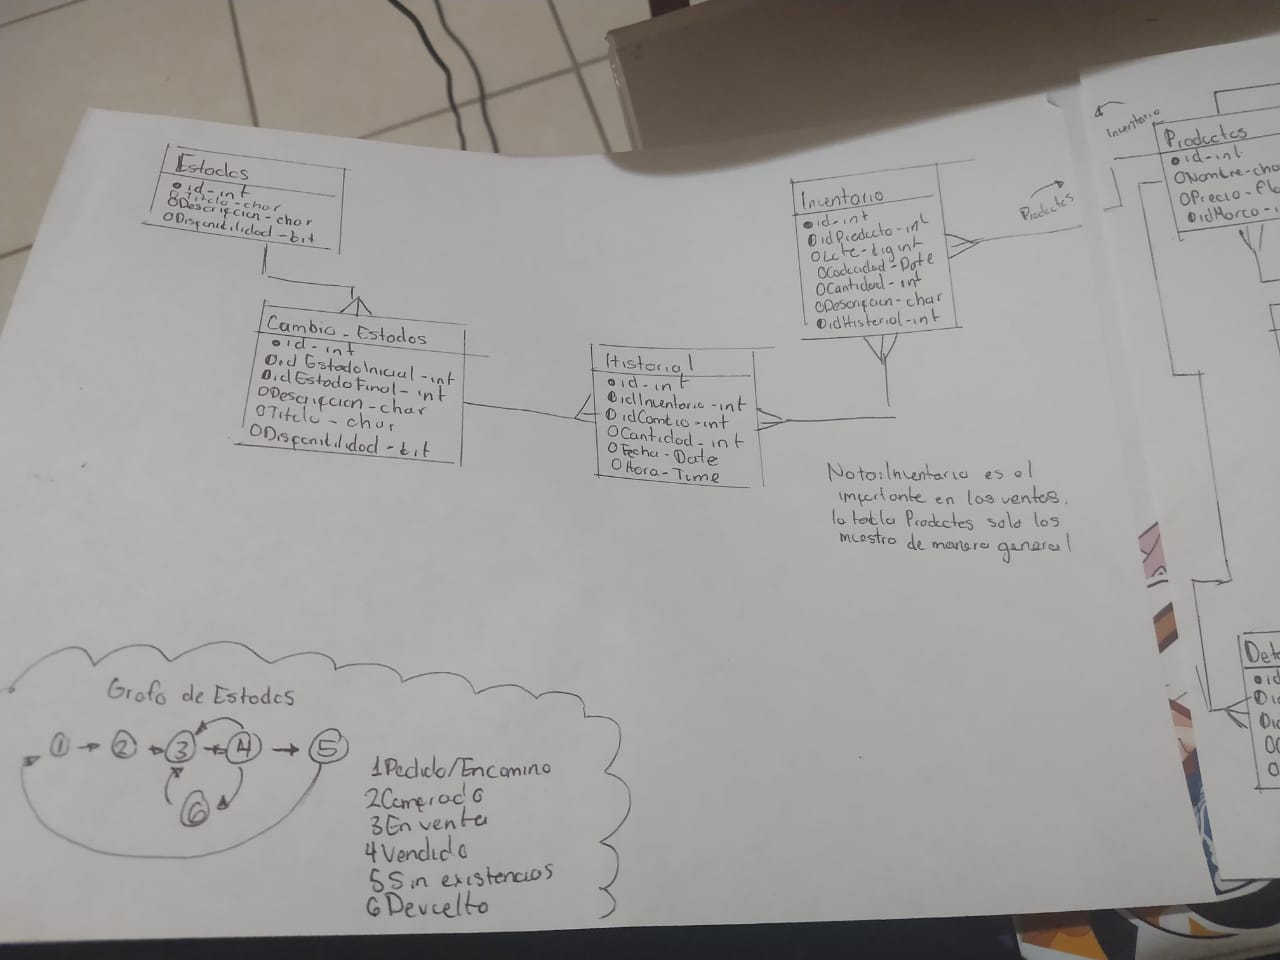 Estados
id-int
Titulo-char
Descripcion-char
Disponibilidad-bit
Cambio-Estados
id-int
idEstadoInicial-int
idEstadoFinal-int
Descripcion-char
Titulo-char
Disponibilidad-bit
Historial
id-int
idInventario-int
idCambio-int
Cantidad-int
Fecha-Date
Hora-Time
Inventario
id-int
idProducto-int
Lote-bigint
Caducidad-Date
Cantidad-int
Descripcion-char
idHistorial-int
Productos
Inventario
Productos
id-int
Nombre-cha
Precio-flo
idMarca-i
Nota:Inventario es el
importante en las ventas.
la tabla Productos solo los
muestra de manera general
Grafo de Estados
1
2
3
4
5
6
1Pedido/Encamino
2Comprado
3En venta
4Vendido
5Sin existencias
6Devuelto
Det
id